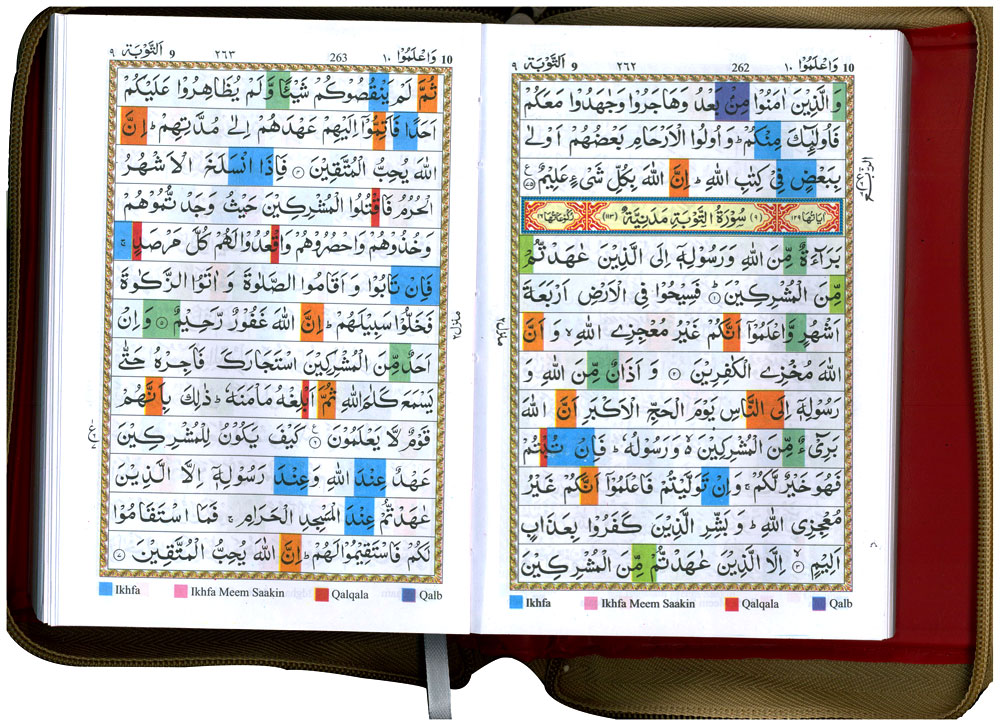 10 وَاعْلَمُوْۤا ١٠ 262 ٢٦٢ 9 اَلتَّوْبَة ٩
وَالَّذِيْنَ اٰمَنُوْا مِنْۢ بَعْدُ وَهَاجَرُوْا وَجٰهَدُوْا مَعَكُمْ
فَاُولٰٓئِكَ مِنْكُمْ ؕ وَ اُولُوا الْاَرْحَامِ بَعْضُهُمْ اَوْلٰى
بِبَعْضٍ فِيْ كِتٰبِ اللّٰهِ ؕ اِنَّ اللّٰهَ بِكُلِّ شَيْءٍ عَلِيْمٌ ٧٥
اٰيَاتُهَا ١٢٩ (٩) سُوْرَةُ التَّوْبَةِ مَدَنِيَّةٌ (١١٣) رُكُوْعَاتُهَا ١٦
بَرَآءَةٌ مِّنَ اللّٰهِ وَرَسُوْلِهٖۤ اِلَى الَّذِيْنَ عٰهَدْتُّمْ
مِّنَ الْمُشْرِكِيْنَ ؕ ١ فَسِيْحُوْا فِي الْاَرْضِ اَرْبَعَةَ
اَشْهُرٍ وَّاعْلَمُوْۤا اَنَّكُمْ غَيْرُ مُعْجِزِي اللّٰهِ ۙ وَ اَنَّ
اللّٰهَ مُخْزِي الْكٰفِرِيْنَ ٢ وَ اَذَانٌ مِّنَ اللّٰهِ وَ
رَسُوْلِهٖۤ اِلَى النَّاسِ يَوْمَ الْحَجِّ الْاَكْبَرِ اَنَّ اللّٰهَ
بَرِيْٓءٌ مِّنَ الْمُشْرِكِيْنَ ۙ۬ وَرَسُوْلُهٗ ؕ فَاِنْ تُبْتُمْ
فَهُوَ خَيْرٌ لَّكُمْ ۚ وَاِنْ تَوَلَّيْتُمْ فَاعْلَمُوْۤا اَنَّكُمْ غَيْرُ
مُعْجِزِي اللّٰهِ ؕ وَ بَشِّرِ الَّذِيْنَ كَفَرُوْا بِعَذَابٍ
اَلِيْمٍ ۙ ٣ اِلَّا الَّذِيْنَ عٰهَدْتُّمْ مِّنَ الْمُشْرِكِيْنَ
Ikhfa Ikhfa Meem Saakin Qalqala Qalb
10 وَاعْلَمُوْۤا ١٠ 263 ٢٦٣ 9 اَلتَّوْبَة ٩
ثُمَّ لَمْ يَنْقُصُوْكُمْ شَيْـًٔا وَّلَمْ يُظَاهِرُوْا عَلَيْكُمْ
اَحَدًا فَاَتِمُّوْۤا اِلَيْهِمْ عَهْدَهُمْ اِلٰى مُدَّتِهِمْ ؕ اِنَّ
اللّٰهَ يُحِبُّ الْمُتَّقِيْنَ ٤ فَاِذَا انْسَلَخَ الْاَشْهُرُ
الْحُرُمُ فَاقْتُلُوا الْمُشْرِكِيْنَ حَيْثُ وَجَدْتُّمُوْهُمْ
وَخُذُوْهُمْ وَاحْصُرُوْهُمْ وَاقْعُدُوْا لَهُمْ كُلَّ مَرْصَدٍ ۚ
فَاِنْ تَابُوْا وَ اَقَامُوا الصَّلٰوةَ وَ اٰتَوُا الزَّكٰوةَ
فَخَلُّوْا سَبِيْلَهُمْ ؕ اِنَّ اللّٰهَ غَفُوْرٌ رَّحِيْمٌ ٥ وَ اِنْ
اَحَدٌ مِّنَ الْمُشْرِكِيْنَ اسْتَجَارَكَ فَاَجِرْهُ حَتّٰى
يَسْمَعَ كَلٰمَ اللّٰهِ ثُمَّ اَبْلِغْهُ مَاْمَنَهٗ ؕ ذٰلِكَ بِاَنَّهُمْ
قَوْمٌ لَّا يَعْلَمُوْنَ ٦ كَيْفَ يَكُوْنُ لِلْمُشْرِكِيْنَ
عَهْدٌ عِنْدَ اللّٰهِ وَعِنْدَ رَسُوْلِهٖۤ اِلَّا الَّذِيْنَ
عٰهَدْتُّمْ عِنْدَ الْمَسْجِدِ الْحَرَامِ ۚ فَمَا اسْتَقَامُوْا
لَكُمْ فَاسْتَقِيْمُوْا لَهُمْ ؕ اِنَّ اللّٰهَ يُحِبُّ الْمُتَّقِيْنَ ٧
Ikhfa Ikhfa Meem Saakin Qalqala Qalb